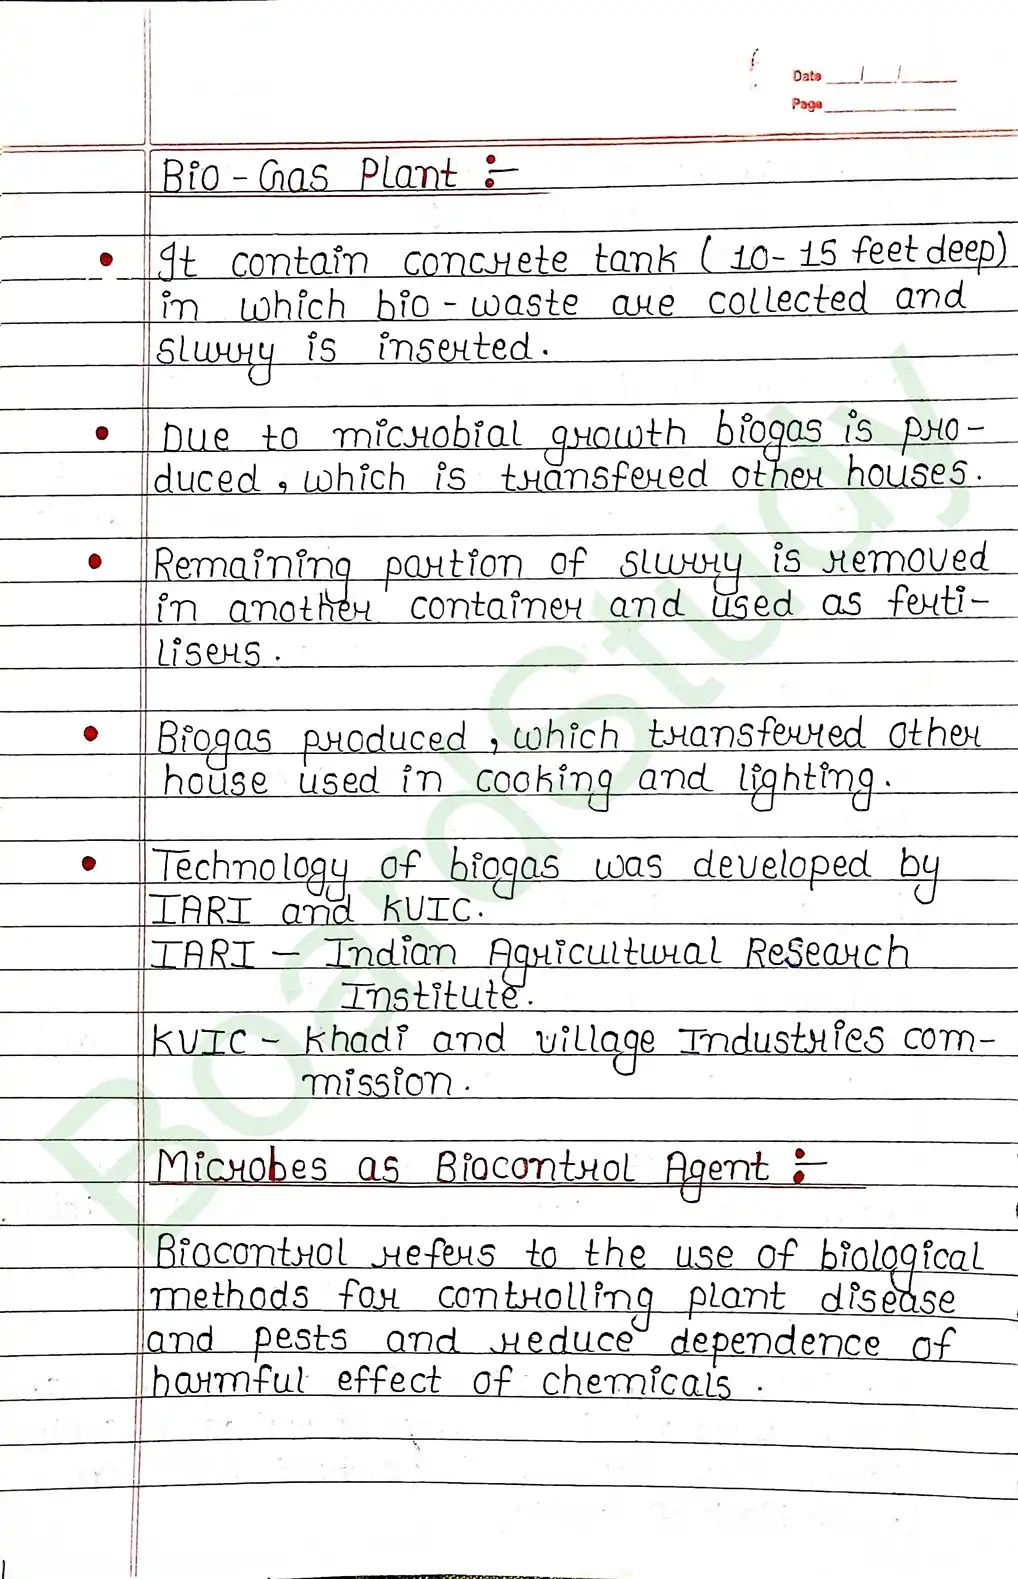 Date ___/___/___
Page
Bio - Gas Plant :-
• It contain concrete tank ( 10- 15 feet deep)
in which bio - waste are collected and
slurry is inserted.
• Due to microbial growth biogas is pro-
duced, which is transfered other houses.
• Remaining portion of slurry is removed
in another container and used as ferti-
lisers.
• Biogas produced, which transferred other
house used in cooking and lighting.
• Technology of biogas was developed by
IARI and KVIC.
IARI - Indian Agricultural Research
Institute.
KVIC - Khadi and village Industries com-
mission.
Microbes as Biocontrol Agent :-
Biocontrol refers to the use of biological
methods for controlling plant disease
and pests and reduce dependence of
harmful effect of chemicals.
BoardStudy